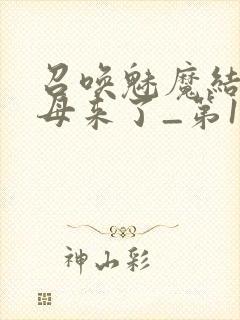 召唤魅魔结
母来了_第1
神山彩